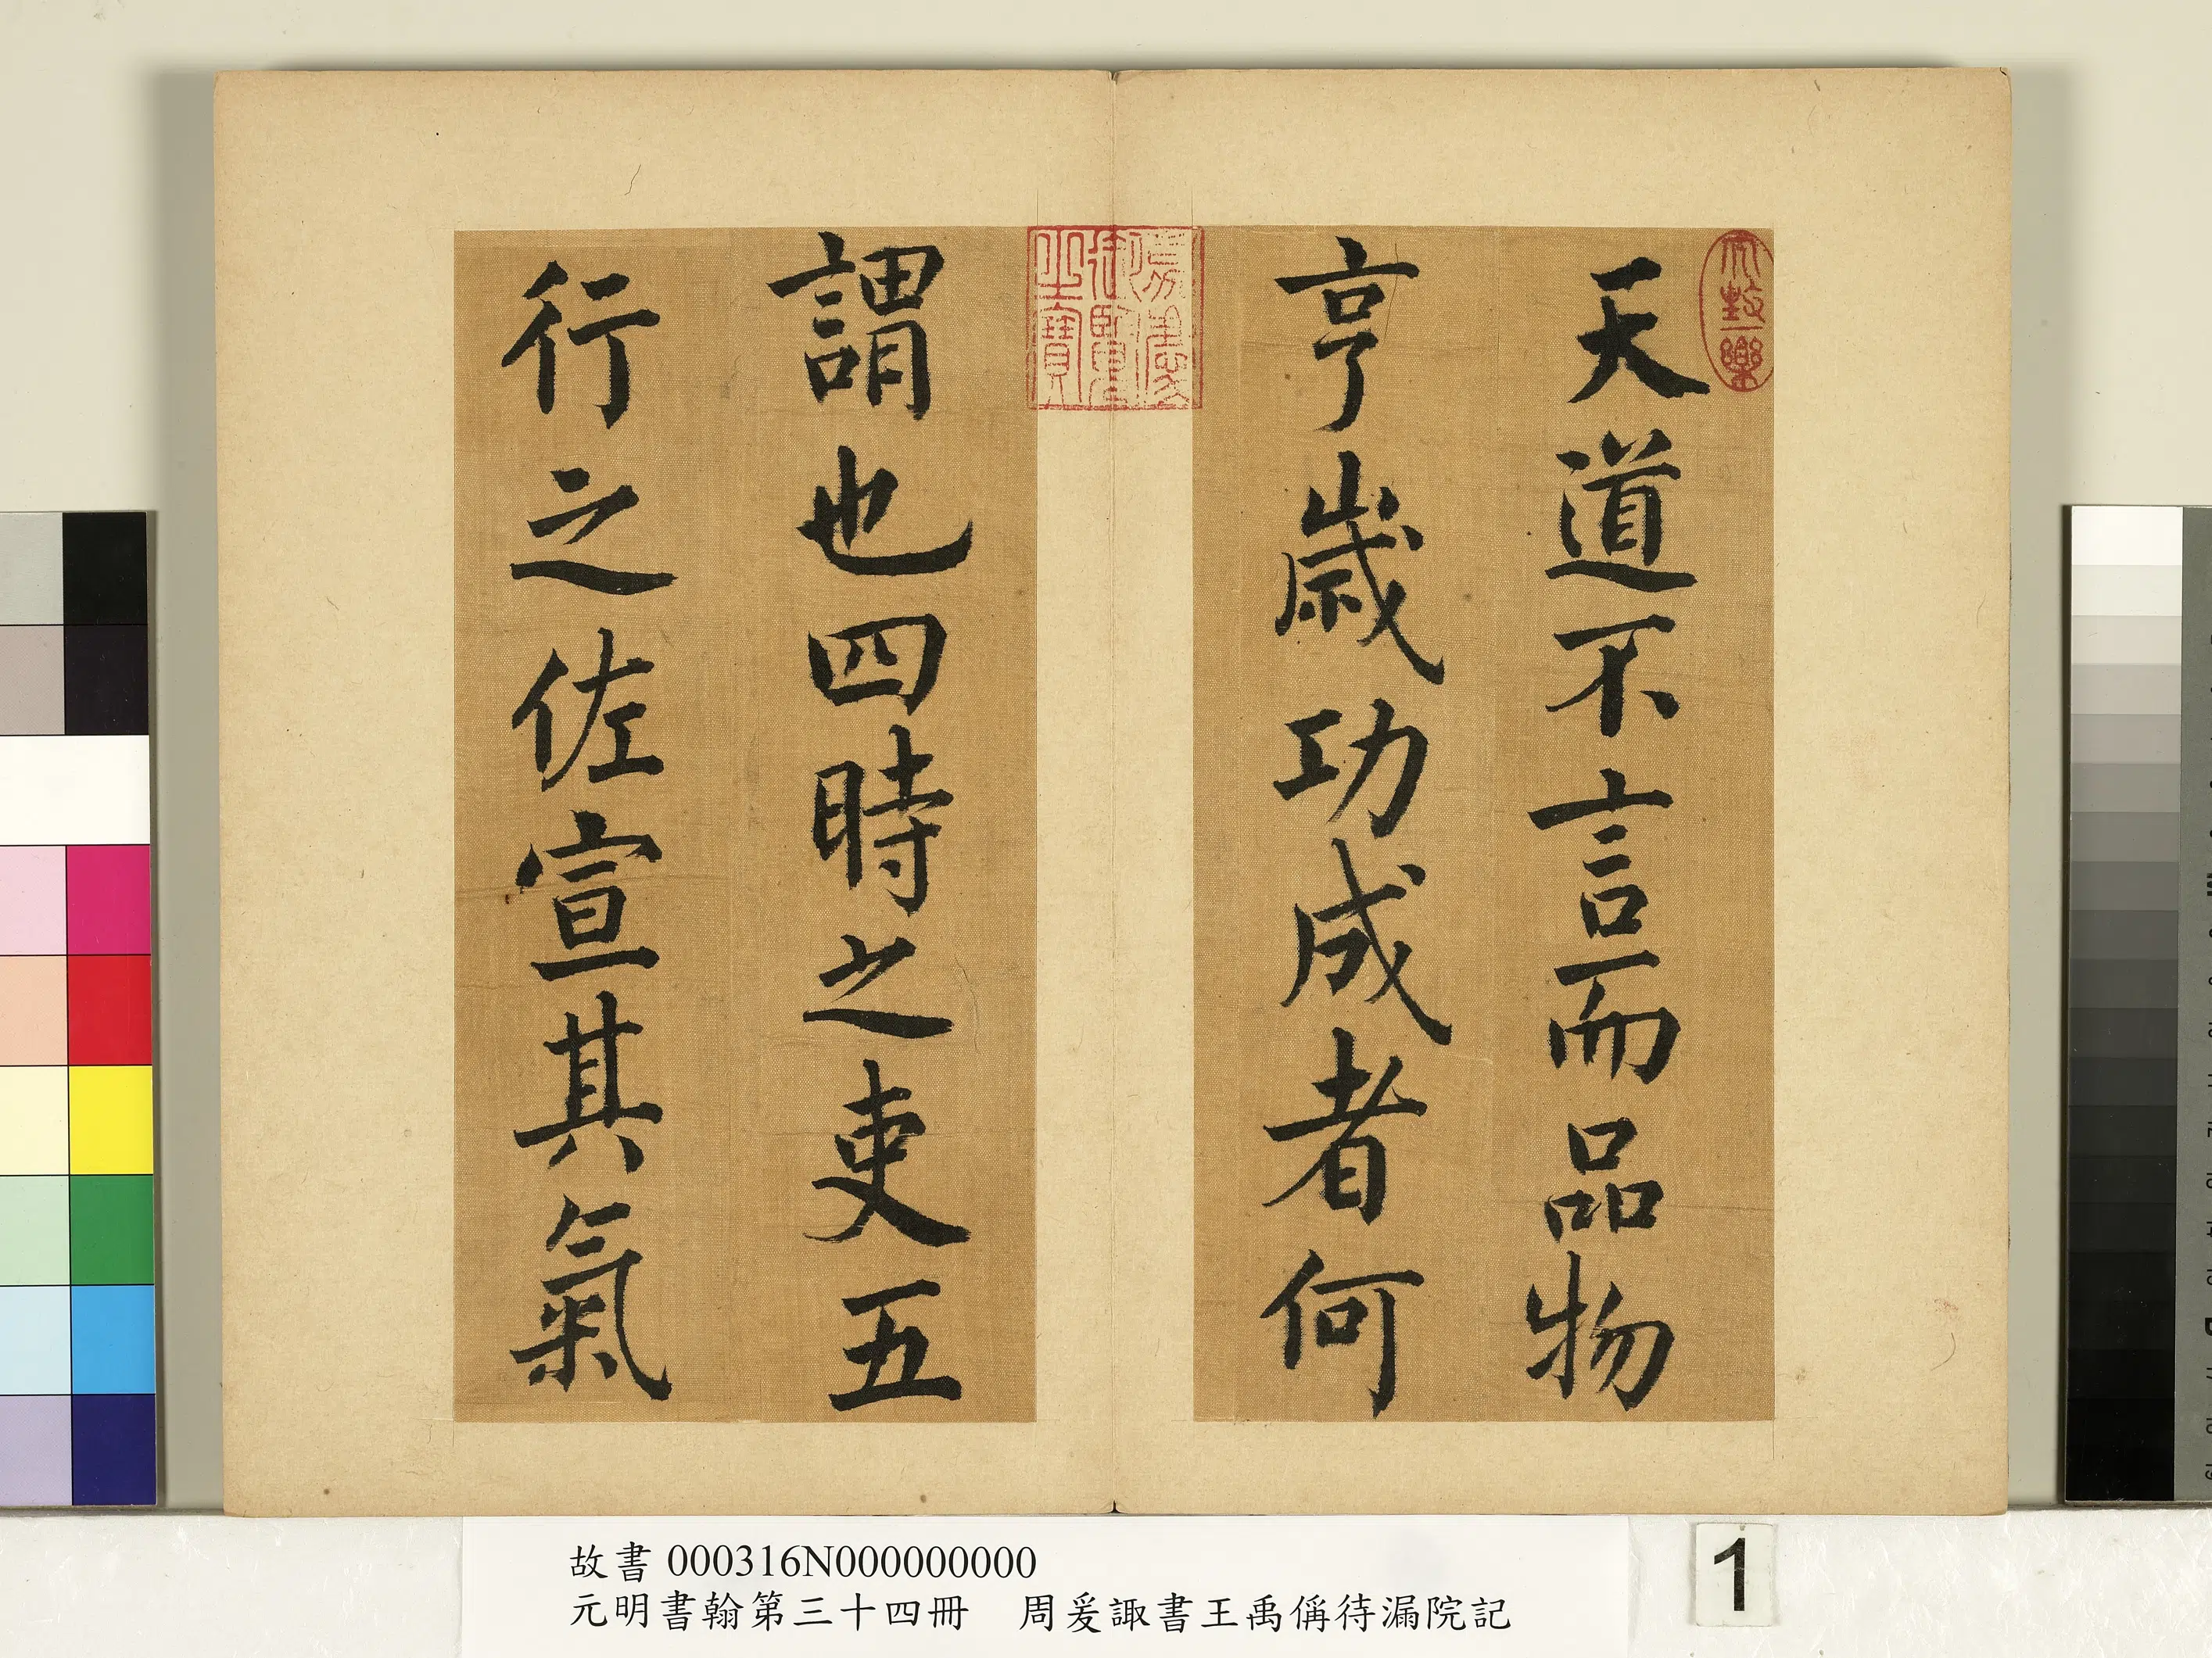 天道不言而品物
亨歲功成者何
謂也四時之吏五
行之佐宣其氣
儀周漢御覽之寶
故書 000316N000000000
元明書翰第三十四冊　周爰諏書王禹偁待漏院記
1